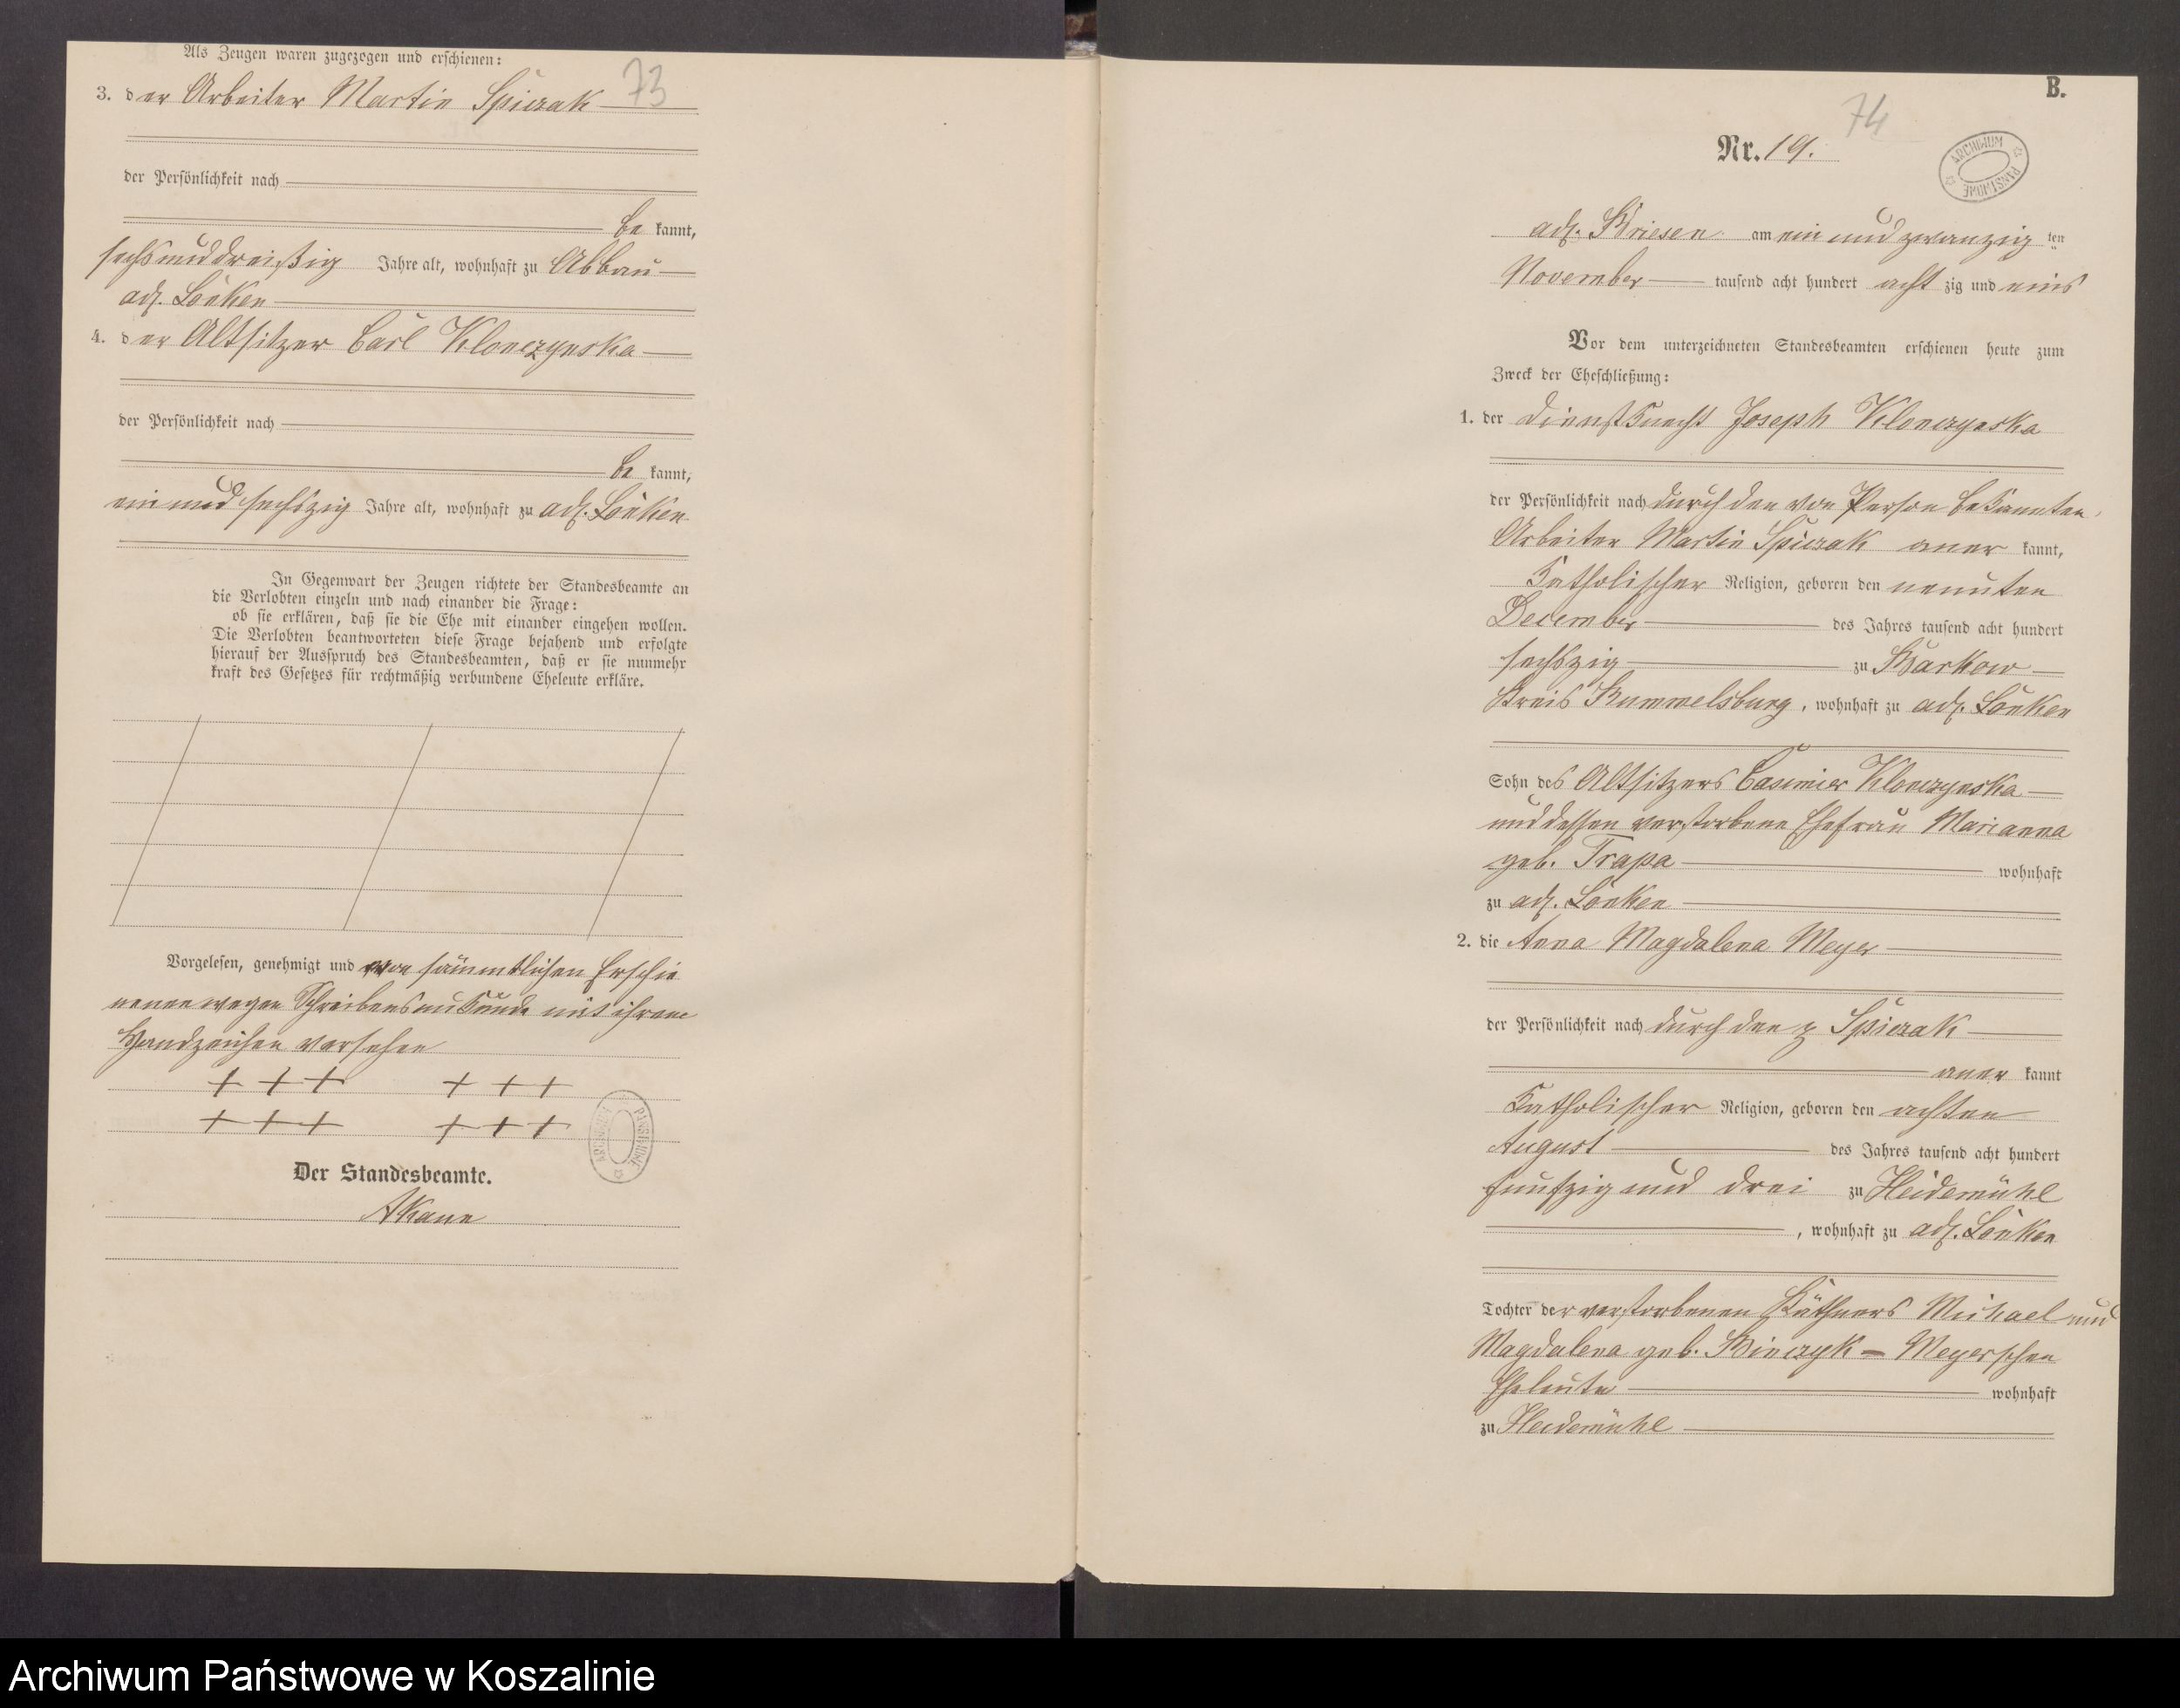 Als Zeugen waren zugezogen und erschienen:
73
3. der Arbeiter Martin Spiczak
der Persönlichkeit nach
be kannt,
sechsunddreißig Jahre alt, wohnhaft zu Abbau
adl. Lonken
4. der Altsitzer Carl Klonczynska
der Persönlichkeit nach
be kannt,
ein und sechszig Jahre alt, wohnhaft zu adl. Lonken
In Gegenwart der Zeugen richtete der Standesbeamte an
die Verlobten einzeln und nach einander die Frage:
ob sie erklären, daß sie die Ehe mit einander eingehen wollen.
Die Verlobten beantworteten diese Frage bejahend und erfolgte
hierauf der Ausspruch des Standesbeamten, daß er sie nunmehr
kraft des Gesetzes für rechtmäßig verbundene Eheleute erkläre.
Vorgelesen, genehmigt und von sämmtlichen Erschie
nenen wegen Schreibensunkunde mit ihrem
Handzeichen versehen
+ + + + + +
+ + + + + +
ARCHIWUM PAŃSTWOWE
Der Standesbeamte.
B.
74
Nr. 19.
ARCHIWUM PAŃSTWOWE
adl. Briesen am ein und zwanzig ten
November tausend acht hundert acht zig und eins
Vor dem unterzeichneten Standesbeamten erschienen heute zum
Zweck der Eheschließung:
1. der Dienstknecht Joseph Klonczynska
der Persönlichkeit nach durch den von Person bekannten
Arbeiter Martin Spiczak aner kannt,
katholischer Religion, geboren den neunten
December des Jahres tausend acht hundert
sechszig zu Barkow
Kreis Rummelsburg, wohnhaft zu adl. Lonken
Sohn des Altsitzers Casimir Klonczynska
und dessen verstorbene Ehefrau Marianna
geb. Trapa wohnhaft
zu adl. Lonken
2. die Anna Magdalena Meyer
der Persönlichkeit nach durch den p Spiczak
aner kannt
katholischer Religion, geboren den achten
August des Jahres tausend acht hundert
funfzig und drei zu Heidemühl
, wohnhaft zu adl. Lonken
Tochter der verstorbenen Käthners Michael und
Magdalena geb. Binczyk - Meyerschen
Eheleute wohnhaft
zu Heidemühl
Archiwum Państwowe w Koszalinie